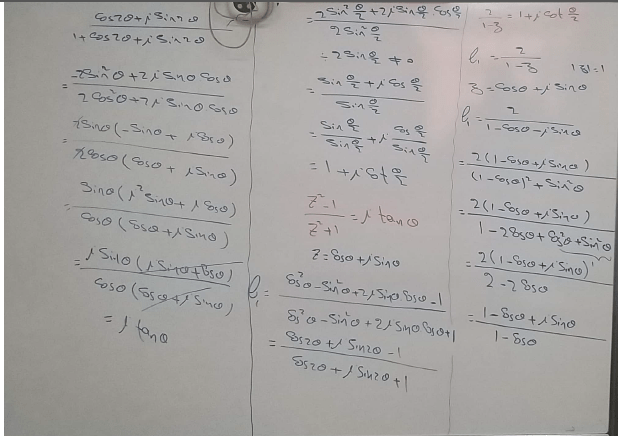 cos2θ + i sin2θ
1 + cos2θ + i sin2θ
= -2sin²θ + 2i sinθ cosθ
2cos²θ + 2i sinθ cosθ
2sinθ(-sinθ + i cosθ)
2cosθ(cosθ + i sinθ)
= sinθ(i² sinθ + i cosθ)
cosθ(cosθ + i sinθ)
= i sinθ(i sinθ + cosθ)
cosθ(cosθ + i sinθ)
= i tanθ
= 2sin² θ/2 + 2i sin θ/2 cos θ/2
2 sin² θ/2
÷ 2sin θ/2 ≠ 0
= sin θ/2 + i cos θ/2
sin θ/2
= sin θ/2 / sin θ/2 + i cos θ/2 / sin θ/2
= 1 + i cot θ/2
z² - 1 / z² + 1 = i tanθ
z = cosθ + i sinθ
l₁ = cos²θ - sin²θ + 2i sinθ cosθ - 1
cos²θ - sin²θ + 2i sinθ cosθ + 1
= cos2θ + i sin2θ - 1
cos2θ + i sin2θ + 1
2 / 1-z = 1 + i cot θ/2
l₁ = 2 / 1-z |z| = 1
z = cosθ + i sinθ
l₁ = 2 / 1 - cosθ - i sinθ
= 2(1 - cosθ + i sinθ)
(1 - cosθ)² + sin²θ
= 2(1 - cosθ + i sinθ)
1 - 2cosθ + cos²θ + sin²θ
= 2(1 - cosθ + i sinθ)
2 - 2cosθ
= 1 - cosθ + i sinθ
1 - cosθ